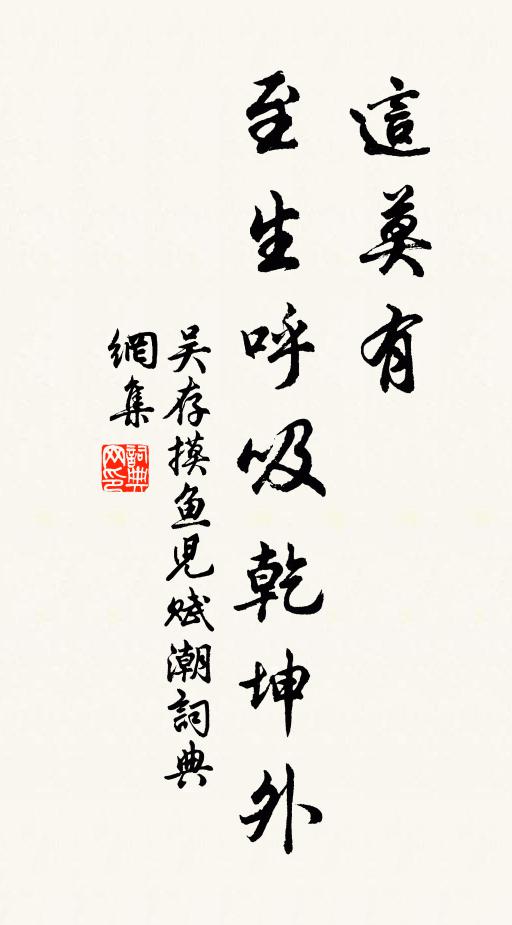 這莫有
至生呼吸乾坤外
吴存摸鱼児赋潮詞典
網集
詞典
网印